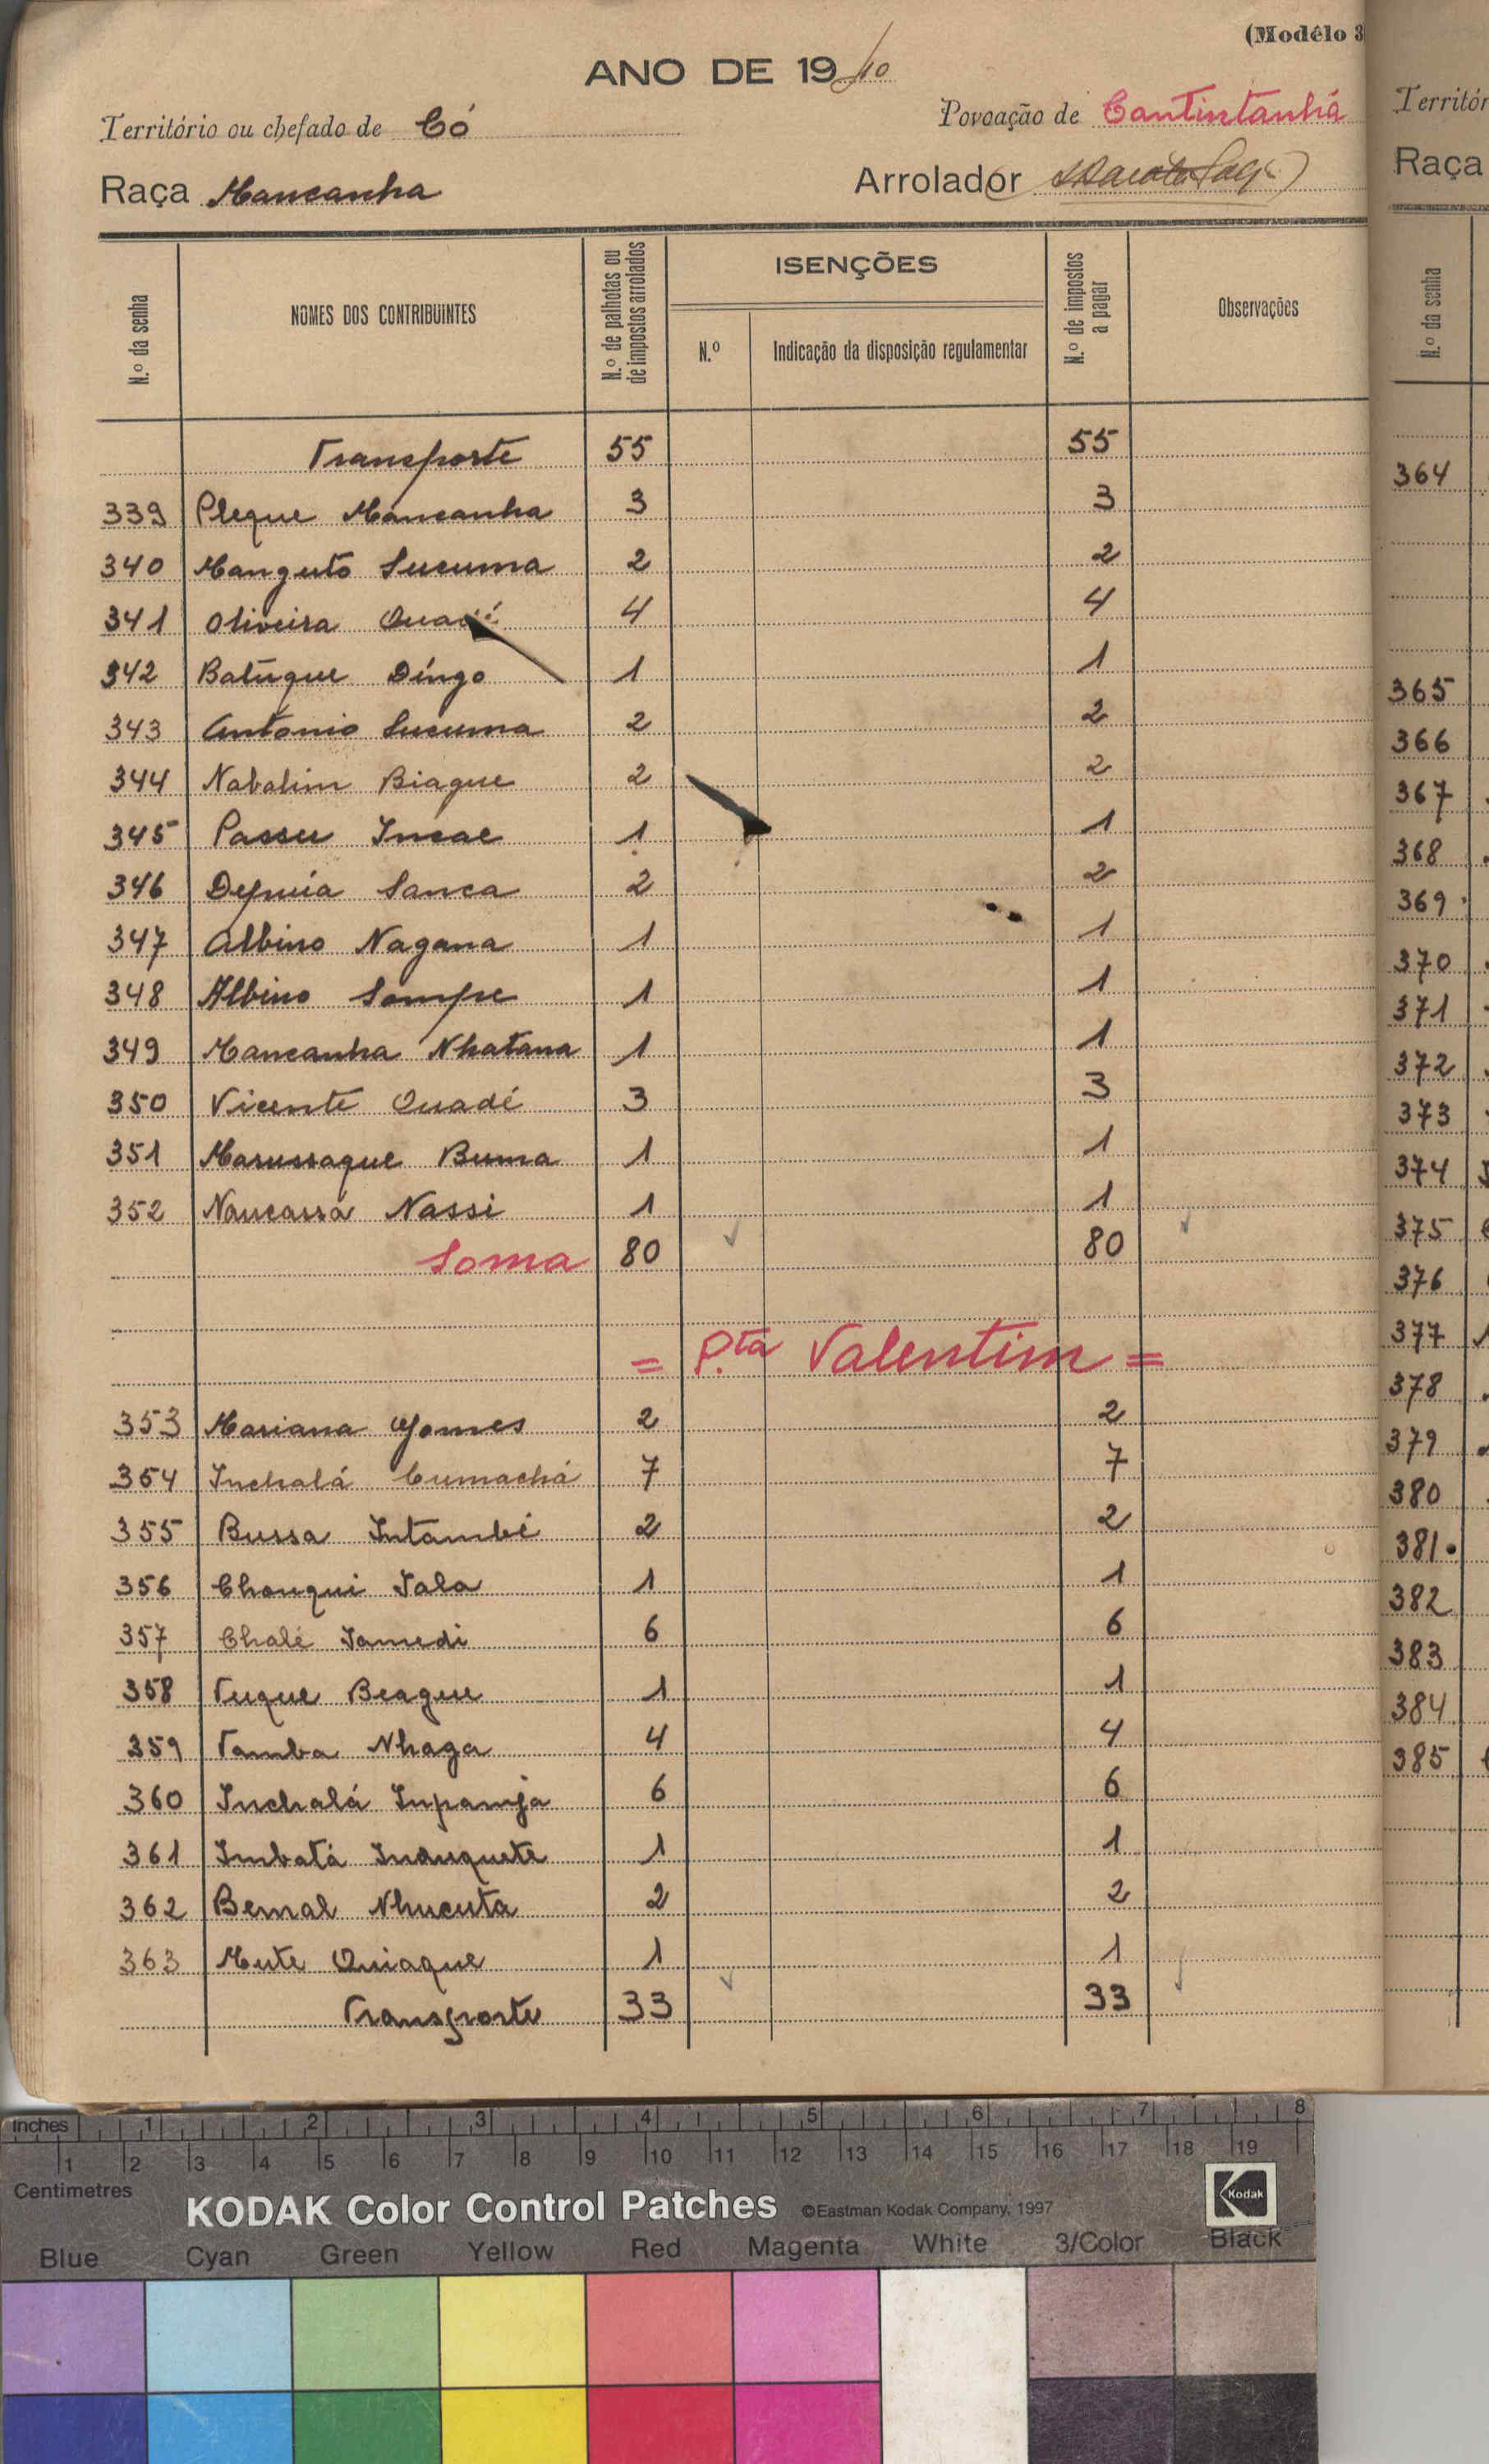 (Modêlo 3
ANO DE 1940
Território ou chefado de Có
Povoação de Cantintanhá
Raça Mancanha
Arrolador
N.º da senha
NOMES DOS CONTRIBUINTES
N.º de palhotas ou de impostos arrolados
ISENÇÕES
N.º
Indicação da disposição regulamentar
N.º de impostos a pagar
Observações
Transporte 55 55
339 Pleque Mancanha 3 3
340 Manguto Sucuma 2 2
341 Oliveira 4 4
342 Batuque Dingo 1 1
343 Antonio Sucuma 2 2
344 Nabalim Biague 2 2
345 Passu Incae 1 1
346 Sanca 2 2
347 Albino Nagana 1 1
348 Albino Sampe 1 1
349 Mancanha Nhatana 1 1
350 Vicente Quadé 3 3
351 Marussaque Buma 1 1
352 Naucassá Nassi 1 1
Soma 80 80
= P.ta Valentim =
353 Mariana Gomes 2 2
354 Inchalá Cumachá 7 7
355 Bussa Intambé 2 2
356 Chanqui Tala 1 1
357 Chalé Samedi 6 6
358 Tuque Beague 1 1
359 Tamba Nhaga 4 4
360 Inchalá Inpamja 6 6
361 Imbatá Induquete 1 1
362 Bemal Nhucuta 2 2
363 Mute Quiaque 1 1
Transporte 33 33
Territór
Raça
N.º da senha
364
365
366
367
368
369
370
371
372
373
374
375
376
377
378
379
380
381
382
383
384
385
inches 1 2 3 4 5 6 7 8
1 2 3 4 5 6 7 8 9 10 11 12 13 14 15 16 17 18 19
Centimetres
KODAK Color Control Patches ©Eastman Kodak Company, 1997
Kodak
Blue Cyan Green Yellow Red Magenta White 3/Color Black